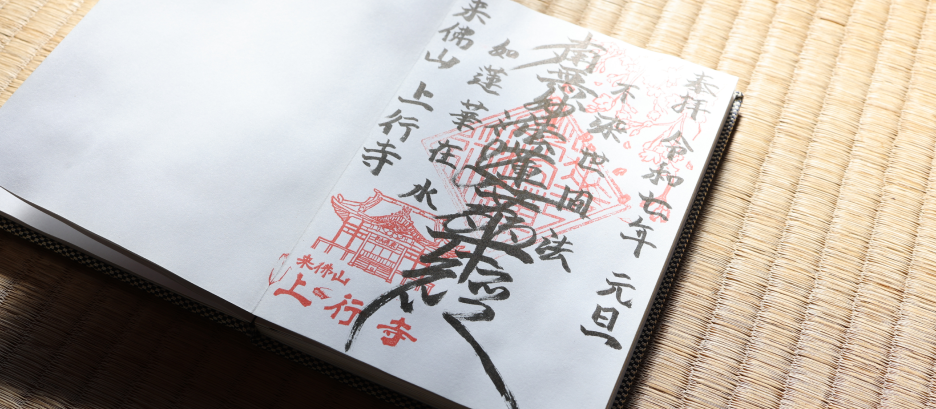 奉拝 令和七年 元旦
不染世間法
南無妙法蓮華経
如蓮華在水
来佛山 上行寺
来佛山
上行寺